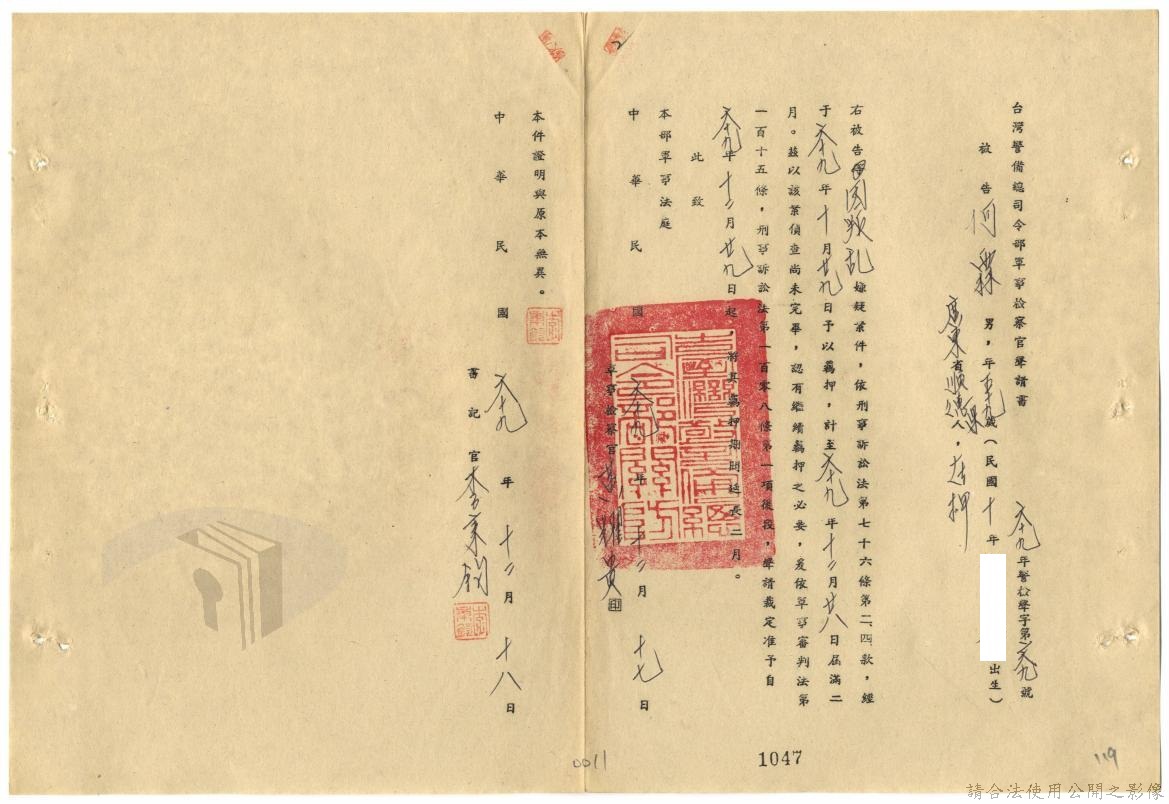 台灣警備總司令部軍事檢察官聲請書
六十九年警檢聲字第 號
被告何 男，年五十九歲（民國十年 出生）
廣東省順德縣人，在押
右被告因叛乱嫌疑案件，依刑事訴訟法第七十六條第二、四款，經
于六十九年十月廿九日予以羈押，計至六十九年十二月廿八日屆滿二
月。茲以該案偵查尚未完畢，認有繼續羈押之必要，爰依軍事審判法第
一百十五條，刑事訴訟法第一百零八條第一項後段，聲請裁定准予自
六十九年十二月廿九日起，將其羈押期間延長二月。
此致
本部軍事法庭
中華民國六十九年十二月十七日
軍事檢察官 印
臺灣警備總司令部關防
本件證明與原本無異。
中華民國六十九年十二月十八日
書記官李
1047
0011
119
請合法使用公開之影像